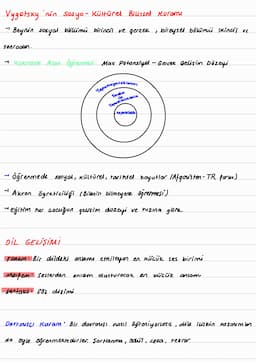 Vygotsky'nin Sosyo-Kültürel Bilişsel Kuramı
→ Beynin sosyal bölümü birincil ve gerçek, bilişsel bölümü ikincil ve
sonradan.
→ Alan Öğrenmesi Max Potansiyel - Gerçek Gelişim Düzeyi
→ Öğrenmede sosyal, kültürel, tarihsel boyutlar
→ Akran Öğreticiliği (Bilenin bilmeyene öğretmesi)
→ Eğitim her çocuğun gelişim düzeyi ve hızına göre.
DİL GELİŞİMİ
Bir dildeki anlamı etkileyen en küçük ses birimi
Seslerden anlam oluşturacak en küçük anlam
söz dizimi
Davranışçı Kuram: Bir davranışı nasıl öğreniyorsak, dile ilişkin kazanımları
da öyle öğrenmektedirler. Şartlanma, ödül, ceza, tekrar